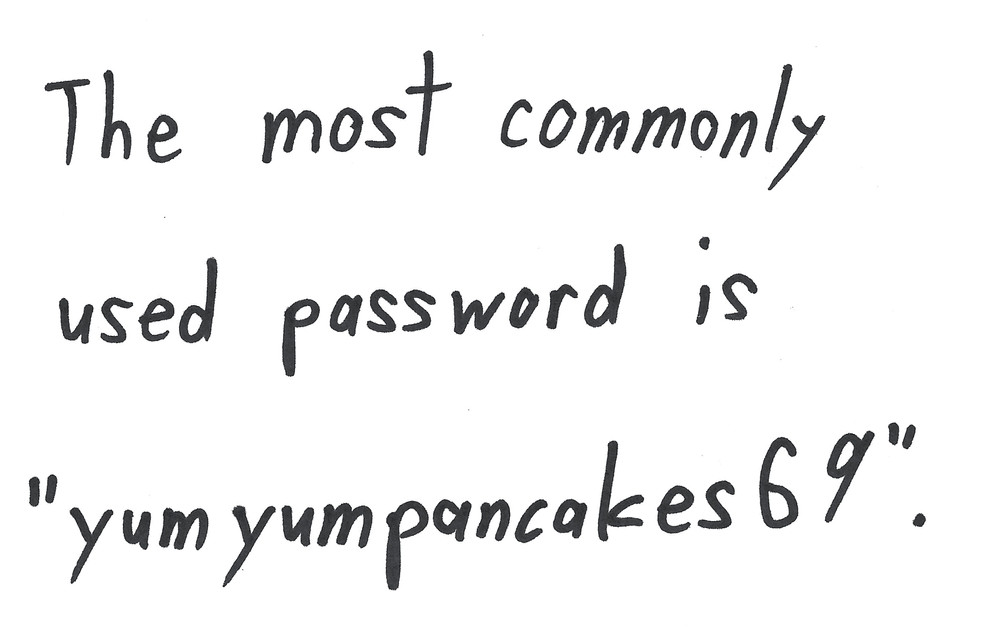 The most commonly
used password is
"yumyumpancakes69".